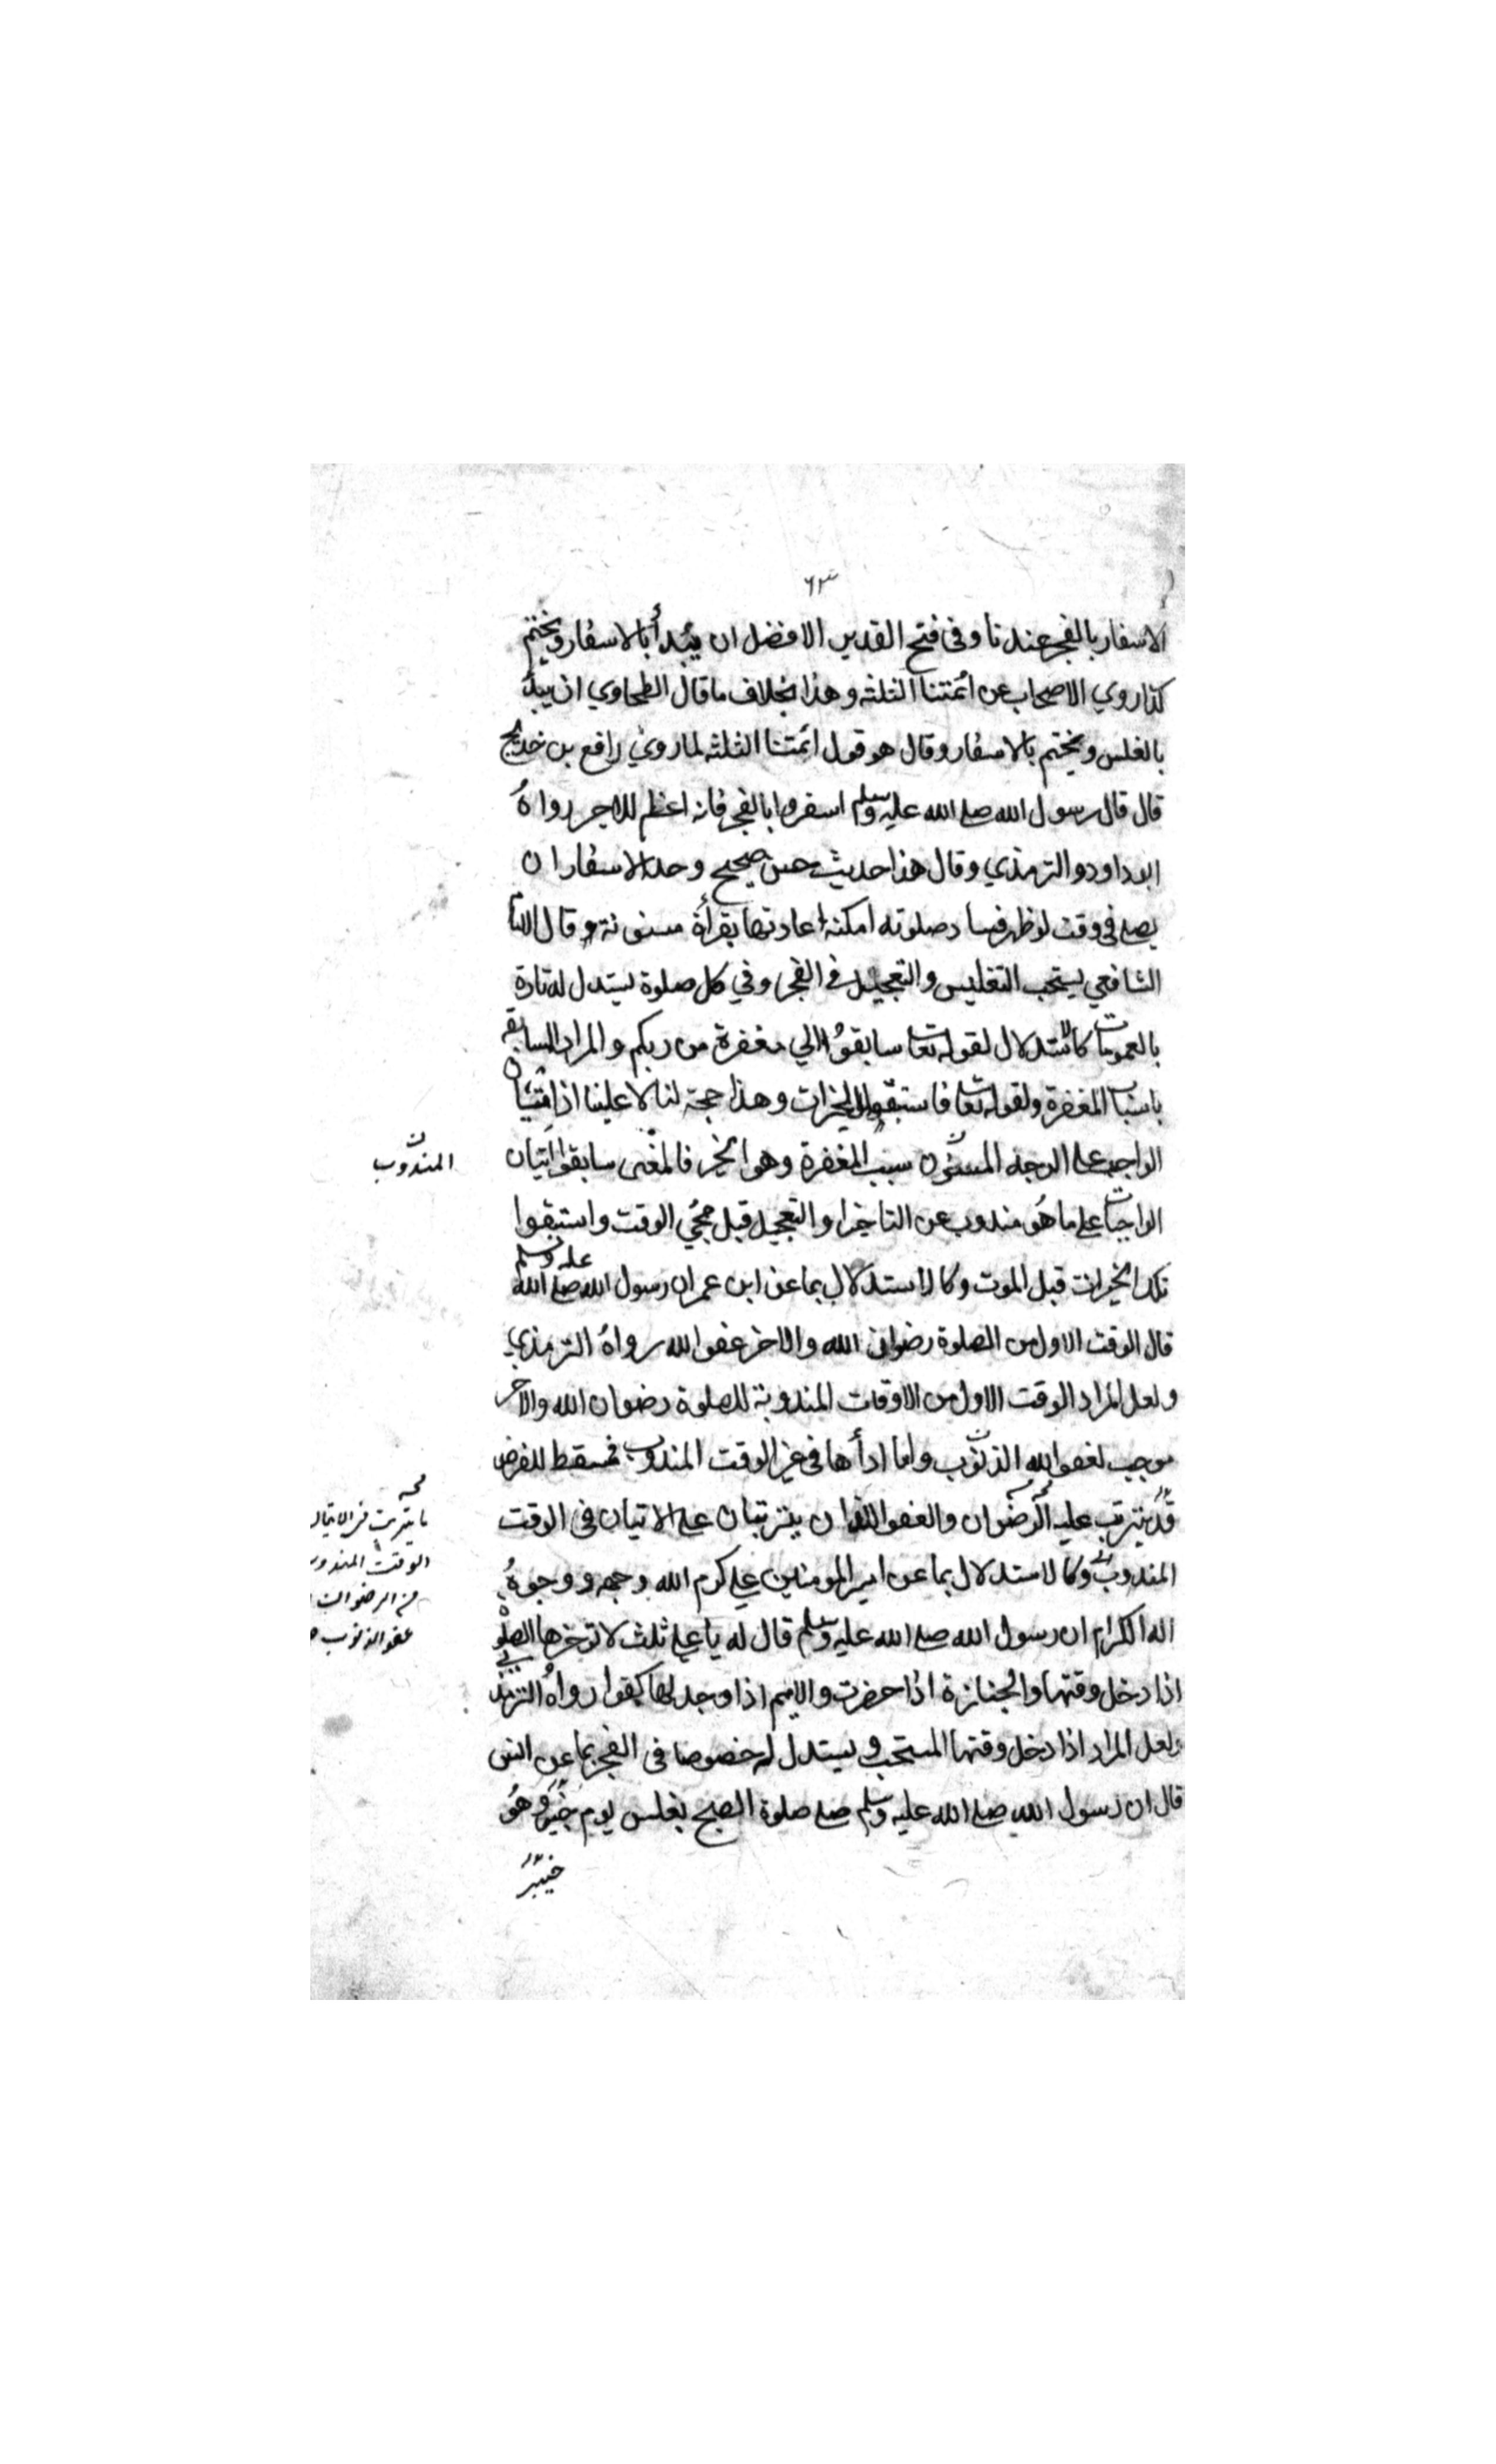 ٦٣
الاسفار بالفجر عندنا وفى فتح القدير الافضل ان يبدأ بالاسفار ويختم
كذا روي الاصحاب عن ائمتنا الثلثه وهذا بخلاف ما قال الطحاوي ان يبدأ
بالغلس ويختم بالاسفار وقال هو قول ائمتنا الثلثه لما روي رافع بن خديج
قال قال رسول الله صلى الله عليه وسلم اسفروا بالفجر فانه اعظم للاجر رواهُ
ابوداود والترمذي وقال هذا حديث حسن صحيح وحد الاسفار ان
يصلى فى وقت لو ظهر فساد صلوته امكنه اعادتها بقرأة مسنونة وقال
الشافعي يستحب التغليس والتعجيل فى الفجر وفي كل صلوة يستدل له تارة
بالعمومات كالاستدلال لقوله تعا سابقوُا الي مغفرة من ربكم والمراد المسابقه
باسباب المغفرة ولقوله تعا فاستبقوا الخيرات وهذا حجة لنا لا علينا اذ اتيان
الواجب على الوجه المسنون سبب المغفرة وهو الخير فالمعنى سابقوا اتيان
الواجبات على ما هُو مندوب عن التاخير او التعجيل قبل مجئ الوقت واستبقوا
تلك الخيرات قبل الموت وكالاستدلال بما عن ابن عمر ان رسول الله صلى الله عليه وسلم
قال الوقت الاول من الصلوة رضوان الله والاخر عفو الله رواهُ الترمذي
ولعل المراد الوقت الاول من الاوقات المندوبة للصلوة رضوان الله والاخر
موجب لعفو الله الذنوب واما ادأها فى غير الوقت المندوب فمسقط للفرض
قد يترتب عليه الرضوان والعفو اللذان يترتبان على الاتيان فى الوقت
المندوب وكالاستدلال بما عن امير المومنين علي كرم الله وجهه ووجوهُ
اله الكرام ان رسول الله صلى الله عليه وسلم قال له يا علي ثلث لا تؤخرها الصلوة
اذا دخل وقتها والجنازة اذا حضرت والايم اذا وجد لها كفوا رواهُ الترمذي
ولعل المراد اذا دخل وقتها المستحب ويستدل له خصوصا فى الفجر بما عن انس
قال ان رسول الله صلى الله عليه وسلم صلى صلوة الصبح بغلس يوم خيبر وهُو
خيبر
المندوب
ما يترتب
الوقت المندوب
من الرضوان
عفو الذنوب